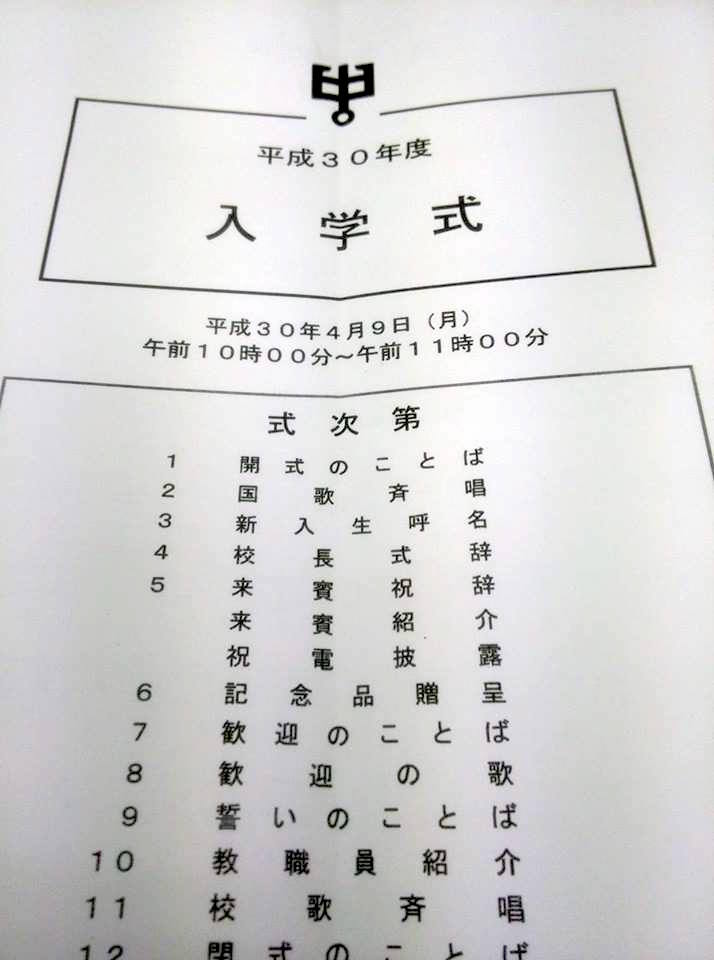 中
平成30年度
入学式
平成30年4月9日（月）
午前10時00分～午前11時00分
式次第
1 開式のことば
2 国歌斉唱
3 新入生呼名
4 校長式辞
5 来賓祝辞
来賓紹介
祝電披露
6 記念品贈呈
7 歓迎のことば
8 歓迎の歌
9 誓いのことば
10 教職員紹介
11 校歌斉唱
12 閉式のことば